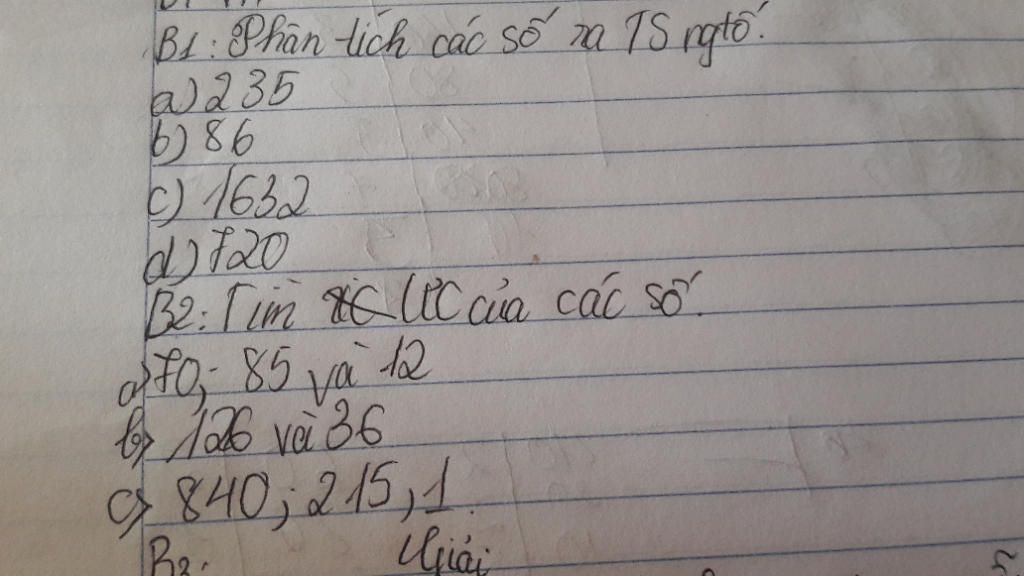 B1: Phân tích các số ra TS ngtố.
a) 235
b) 86
c) 1632
d) 720
B2: Tìm ƯC của các số.
a) 70; 85 và 12
b) 126 và 36
c) 840; 215, 1
Giải